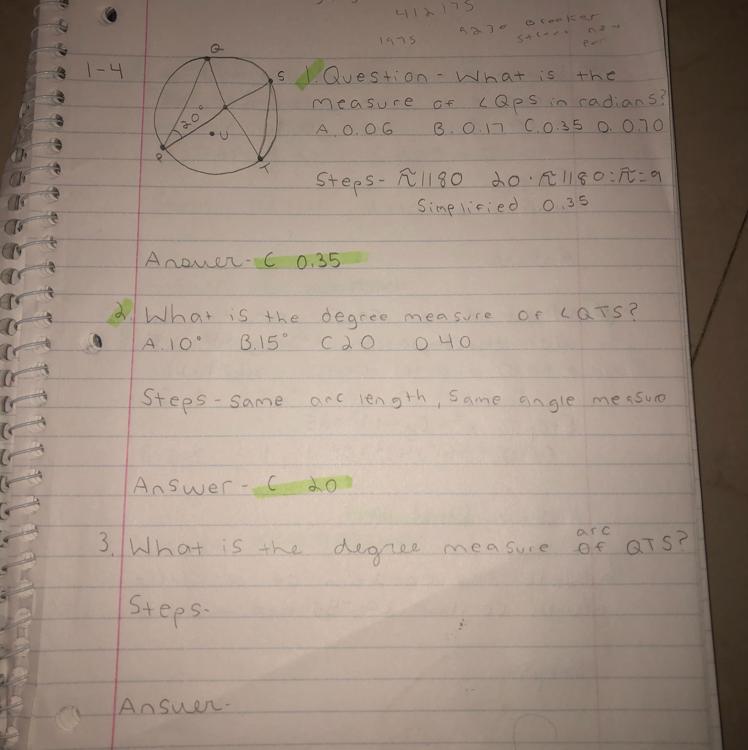 412175
1975 9270
1-4
Q
S
20°
U
P
T
1. Question - What is the
measure of ∠QPS in radians?
A. 0.06 B. 0.17 C. 0.35 D. 0.70
Steps - π/180 20 · π/180 = π = 9
Simplified 0.35
Answer - C 0.35
2. What is the degree measure of ∠QTS?
A. 10° B. 15° C 20 D 40
Steps - same arc length, same angle measure
Answer - C 20
arc
3. What is the degree measure of QTS?
Steps -
Answer -